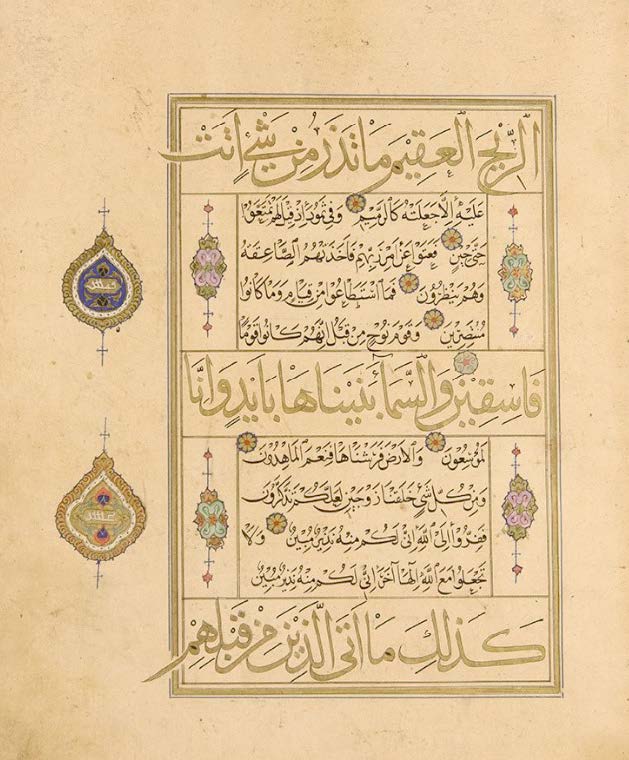 الرِّيحَ الْعَقِيمَ مَا تَذَرُ مِنْ شَيْءٍ أَتَتْ
عَلَيْهِ إِلَّا جَعَلَتْهُ كَالرَّمِيمِ وَفِي ثَمُودَ إِذْ قِيلَ لَهُمْ تَمَتَّعُوا
حَتَّى حِينٍ فَعَتَوْا عَنْ أَمْرِ رَبِّهِمْ فَأَخَذَتْهُمُ الصَّاعِقَةُ
وَهُمْ يَنْظُرُونَ فَمَا اسْتَطَاعُوا مِنْ قِيَامٍ وَمَا كَانُوا
مُنْتَصِرِينَ وَقَوْمَ نُوحٍ مِنْ قَبْلُ إِنَّهُمْ كَانُوا قَوْمًا
فَاسِقِينَ وَالسَّمَاءَ بَنَيْنَاهَا بِأَيْدٍ وَإِنَّا
لَمُوسِعُونَ وَالْأَرْضَ فَرَشْنَاهَا فَنِعْمَ الْمَاهِدُونَ
وَمِنْ كُلِّ شَيْءٍ خَلَقْنَا زَوْجَيْنِ لَعَلَّكُمْ تَذَكَّرُونَ
فَفِرُّوا إِلَى اللَّهِ إِنِّي لَكُمْ مِنْهُ نَذِيرٌ مُبِينٌ وَلَا
تَجْعَلُوا مَعَ اللَّهِ إِلَهًا آخَرَ إِنِّي لَكُمْ مِنْهُ نَذِيرٌ مُبِينٌ
كَذَلِكَ مَا أَتَى الَّذِينَ مِنْ قَبْلِهِمْ